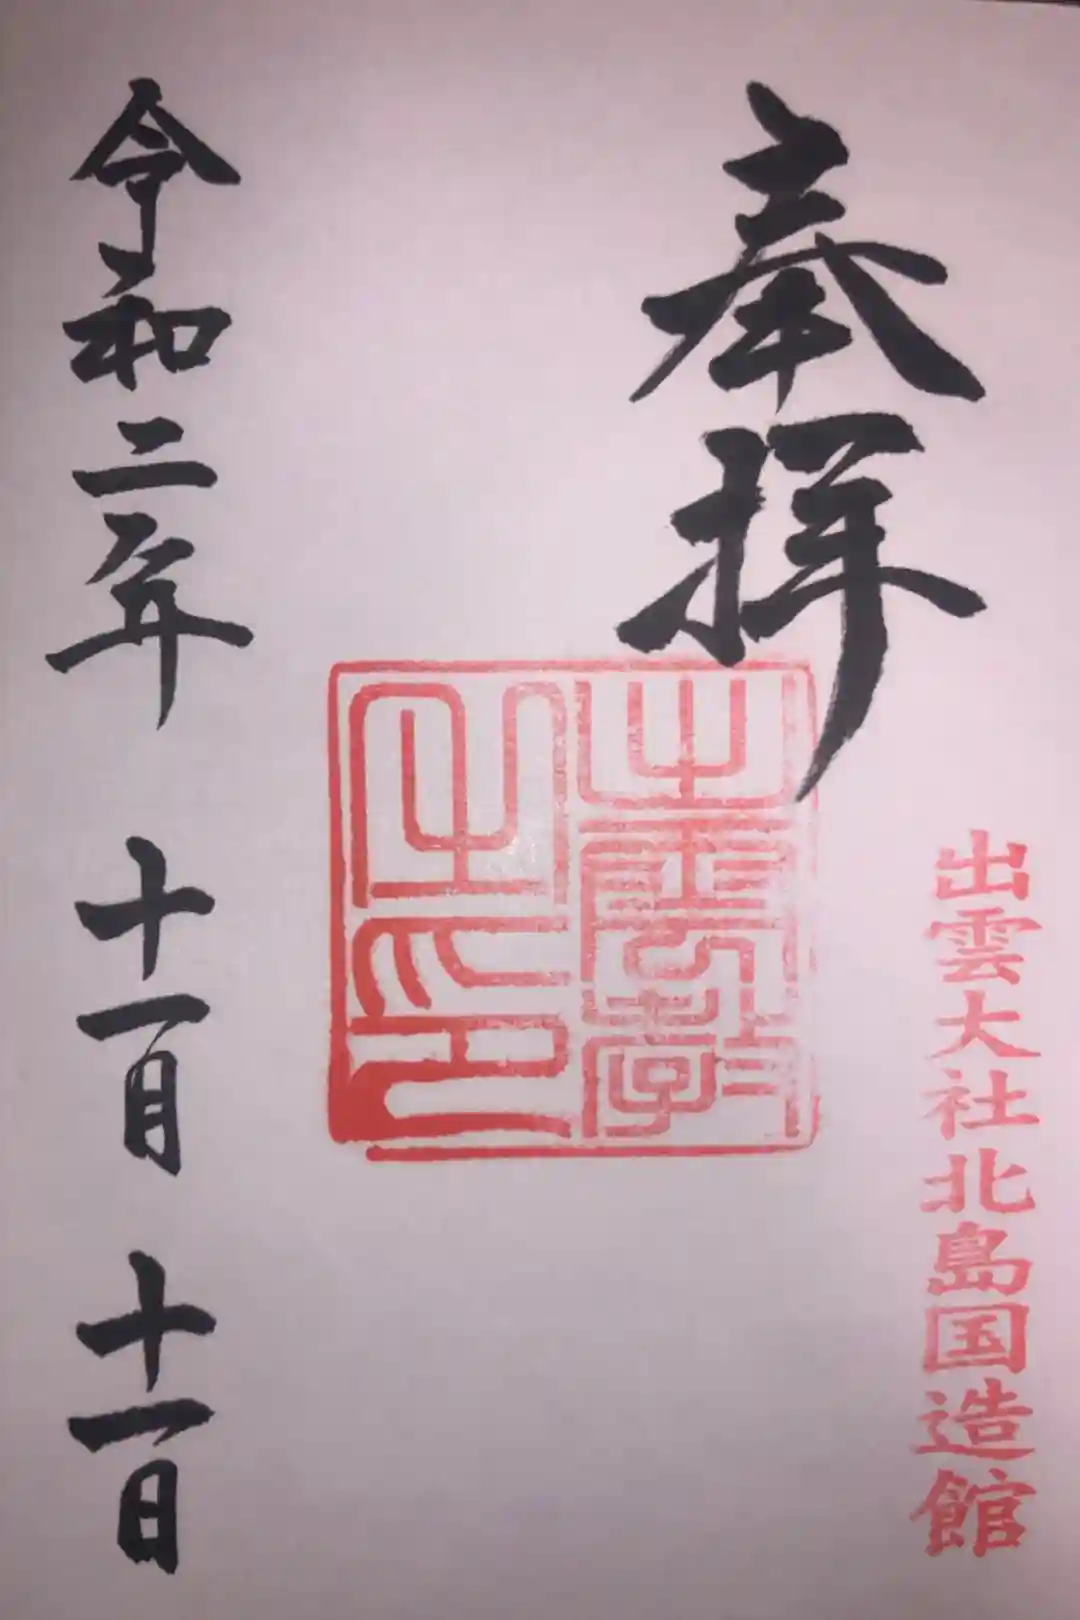 奉拝
出雲大社北島国造館
出雲教
之印
令和二年 十一月 十一日